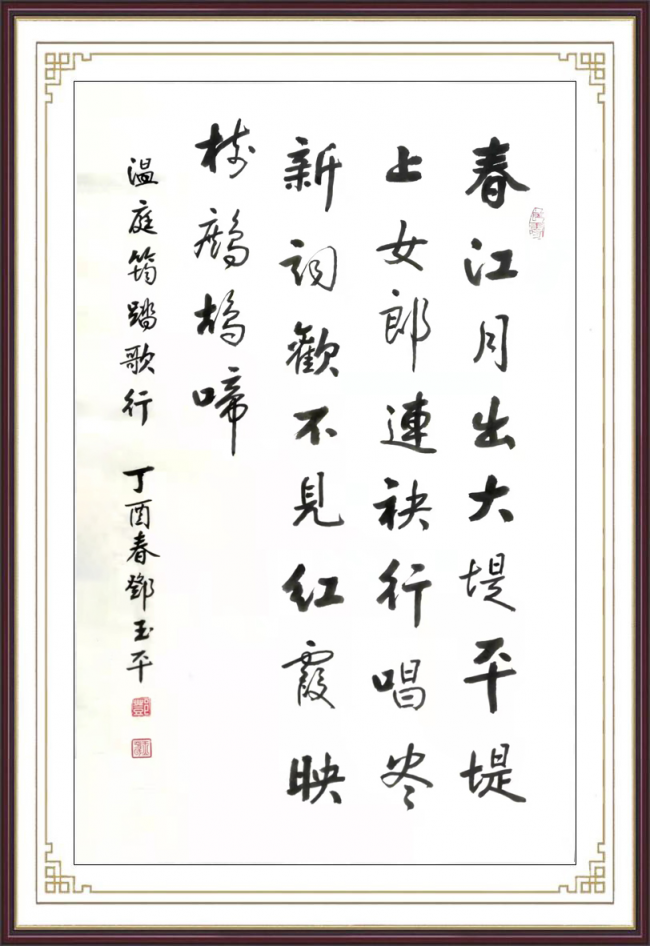 春江月出大堤平堤
上女郎連袂行唱尽
新詞歡不見红霞映
树鹧鸪啼
温庭筠踏歌行 丁酉春鄧玉平